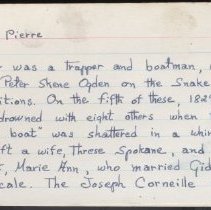 Pierre
was a trapper and boatman,
Peter Skene Ogden on the Snake
itions. On the fifth of these, 182
drowned with eight others when
boat" was shattered in a whir
ft a wife, Threse Spokane, and
Marie Ann, who married Gid
cale. The Joseph Corneille